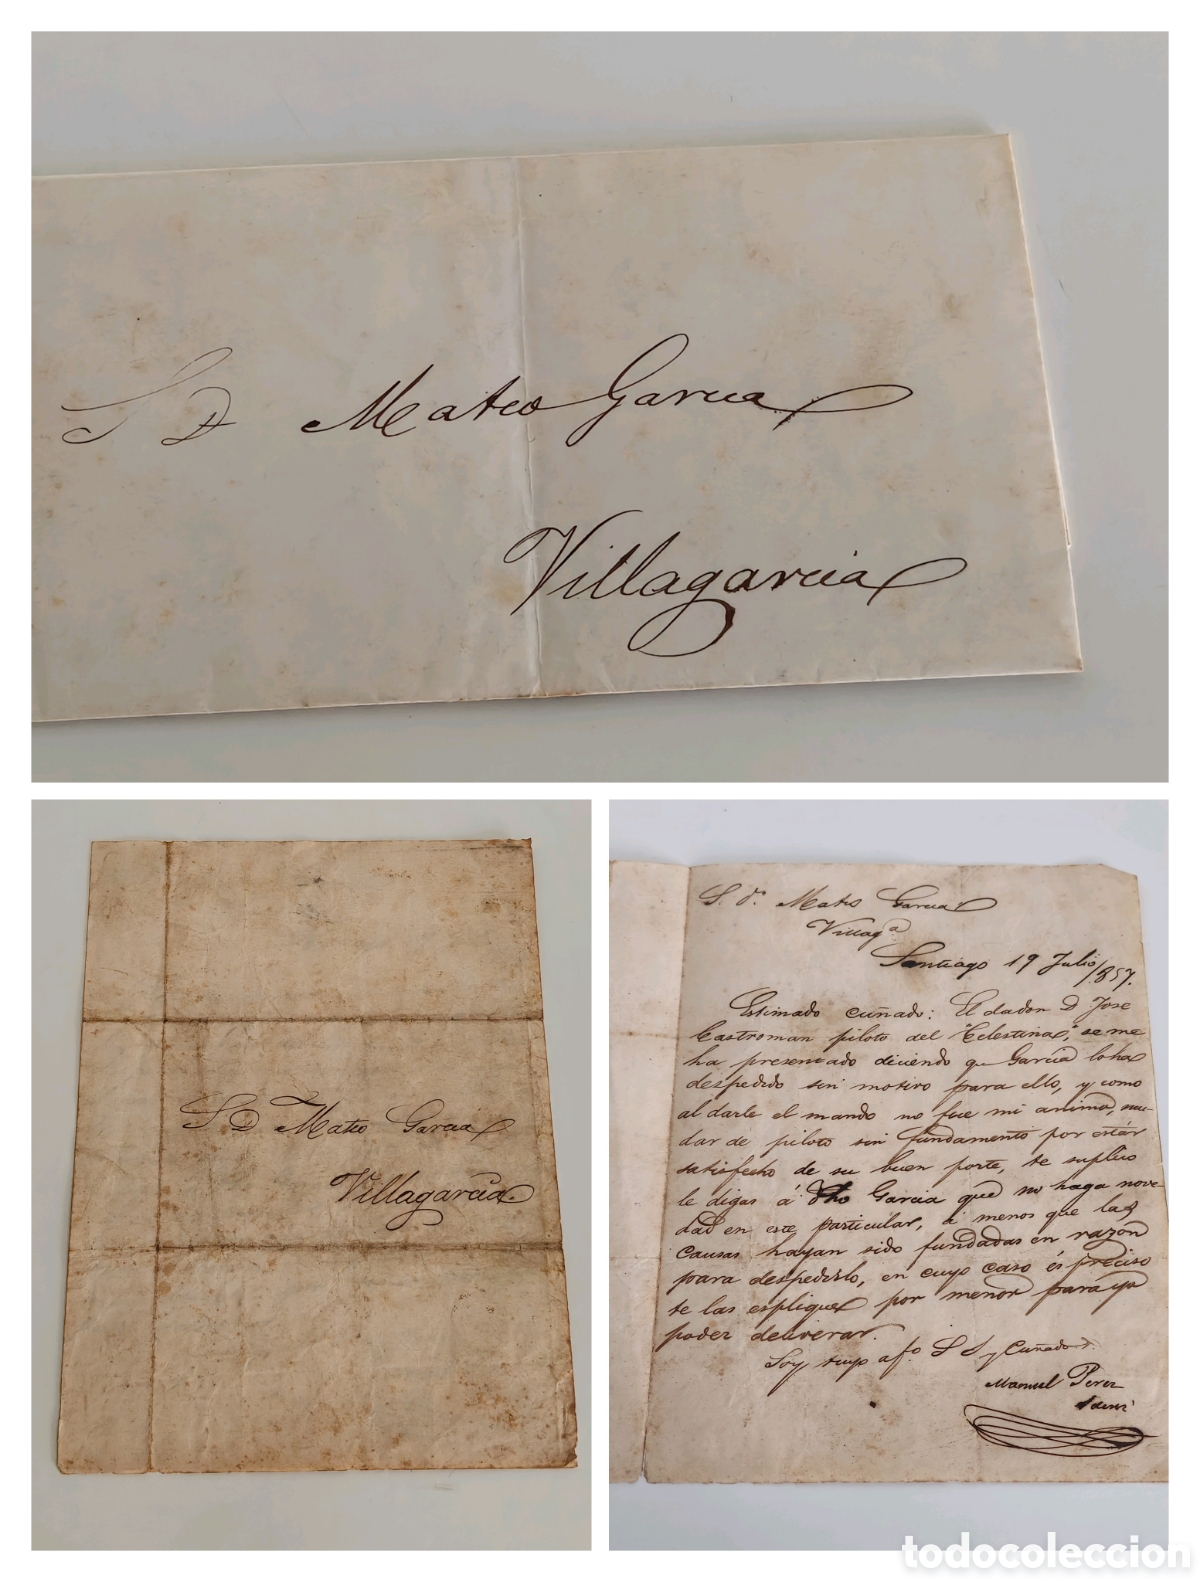 S D Mateo Garcia
Villagarcia
S D Mateo Garcia
Villagarcia.
S. Dn. Mateo Garcia
Villaga
Santiago 19 Julio /857.
Estimado cuñado: El dador D Jose
Castroman piloto del "Celestina", se me
ha presentado diciendo q Garcia loha
despedido sin motivo para ello, y como
al darle el mando no fue mi animo, mu-
dar de piloto sin fundamento por estár
satisfecho de su buen porte, te suplico
le digas á dho Garcia que no haga nove-
dad en este particular, á menos que las
causas hayan sido fundadas en razón
para despedirlo, en cuyo caso és preciso
te las esplique por menor para yo
poder deliverar.
Soy tuyo afo. S S y Cuñado
Manuel Perez
Saenz
todocoleccion